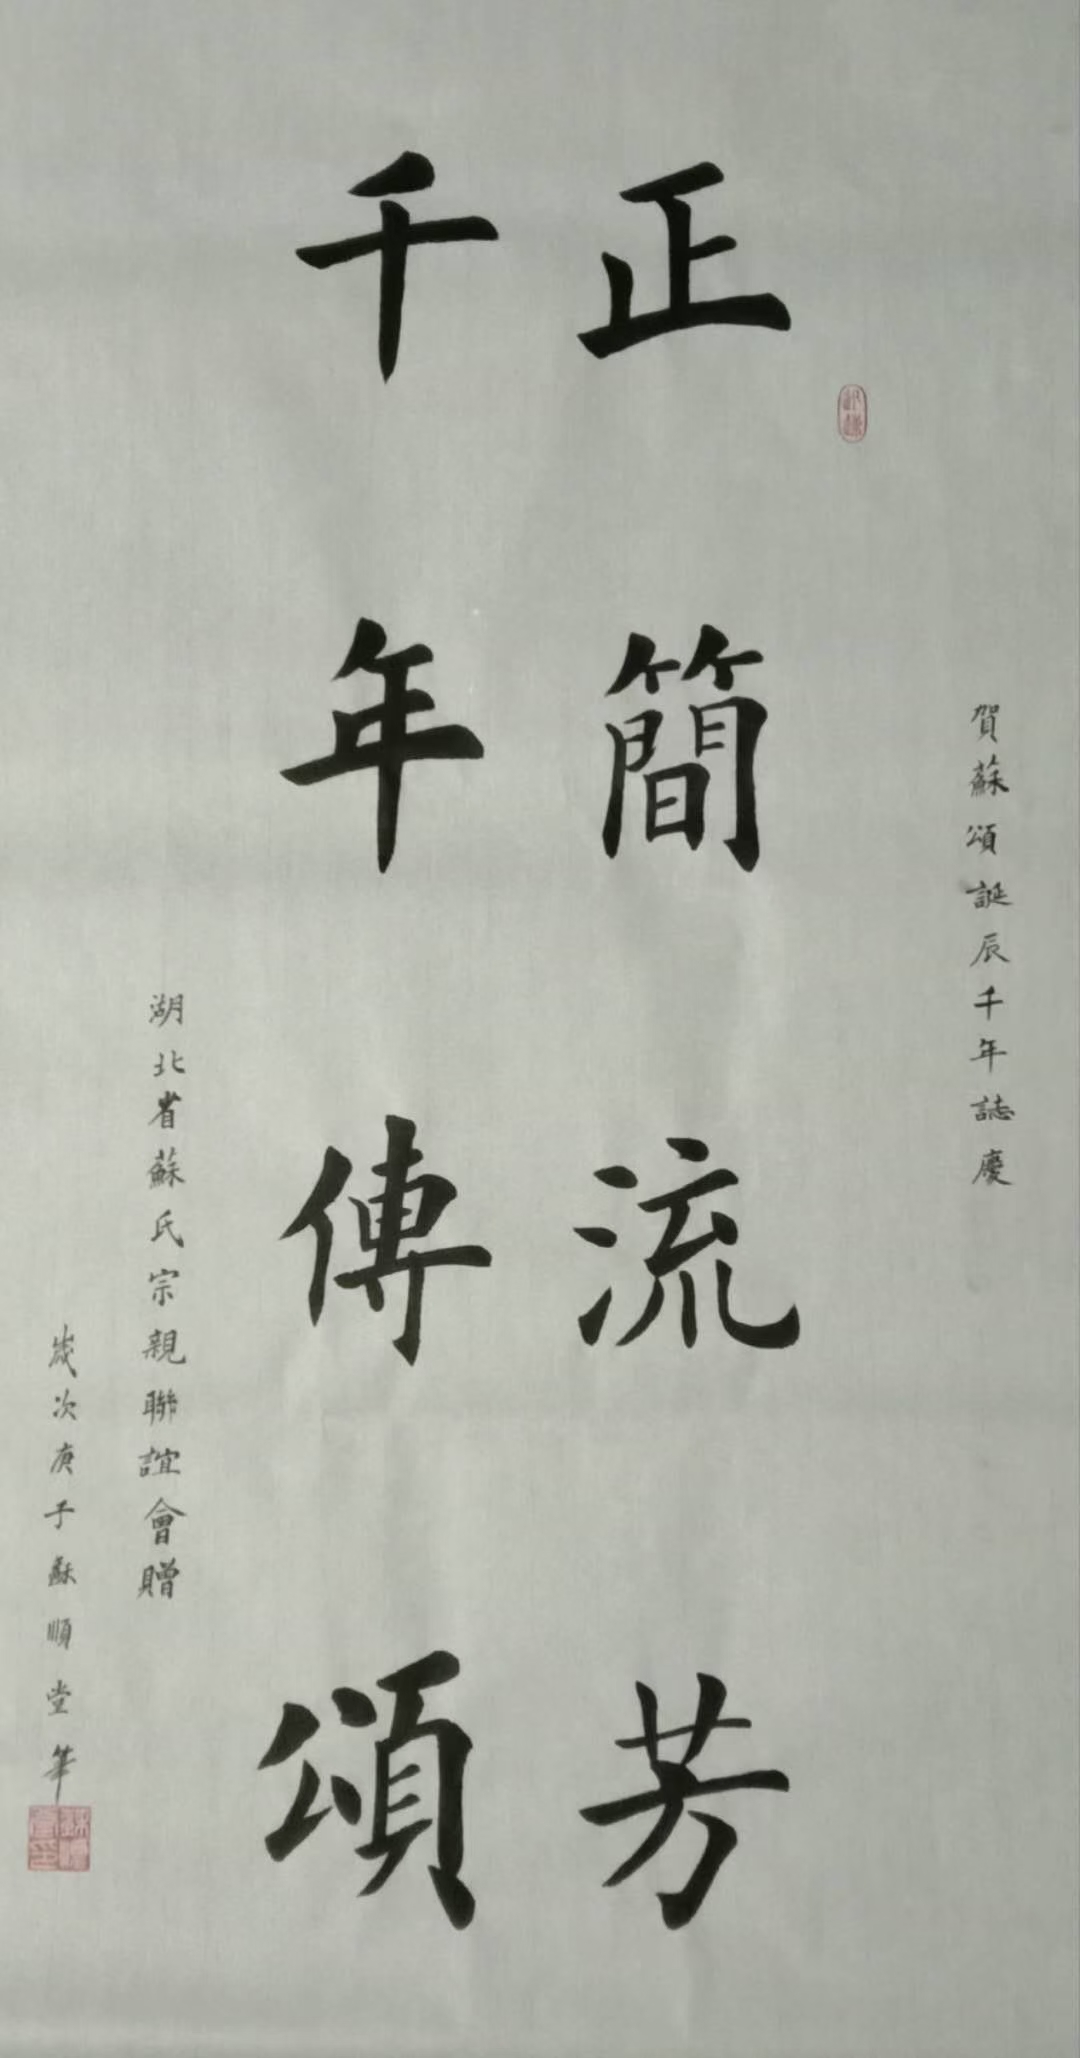 賀蘇頌誕辰千年誌慶
正簡流芳
千年傳頌
湖北省蘇氏宗親聯誼會贈
歲次庚子蘇順堂筆